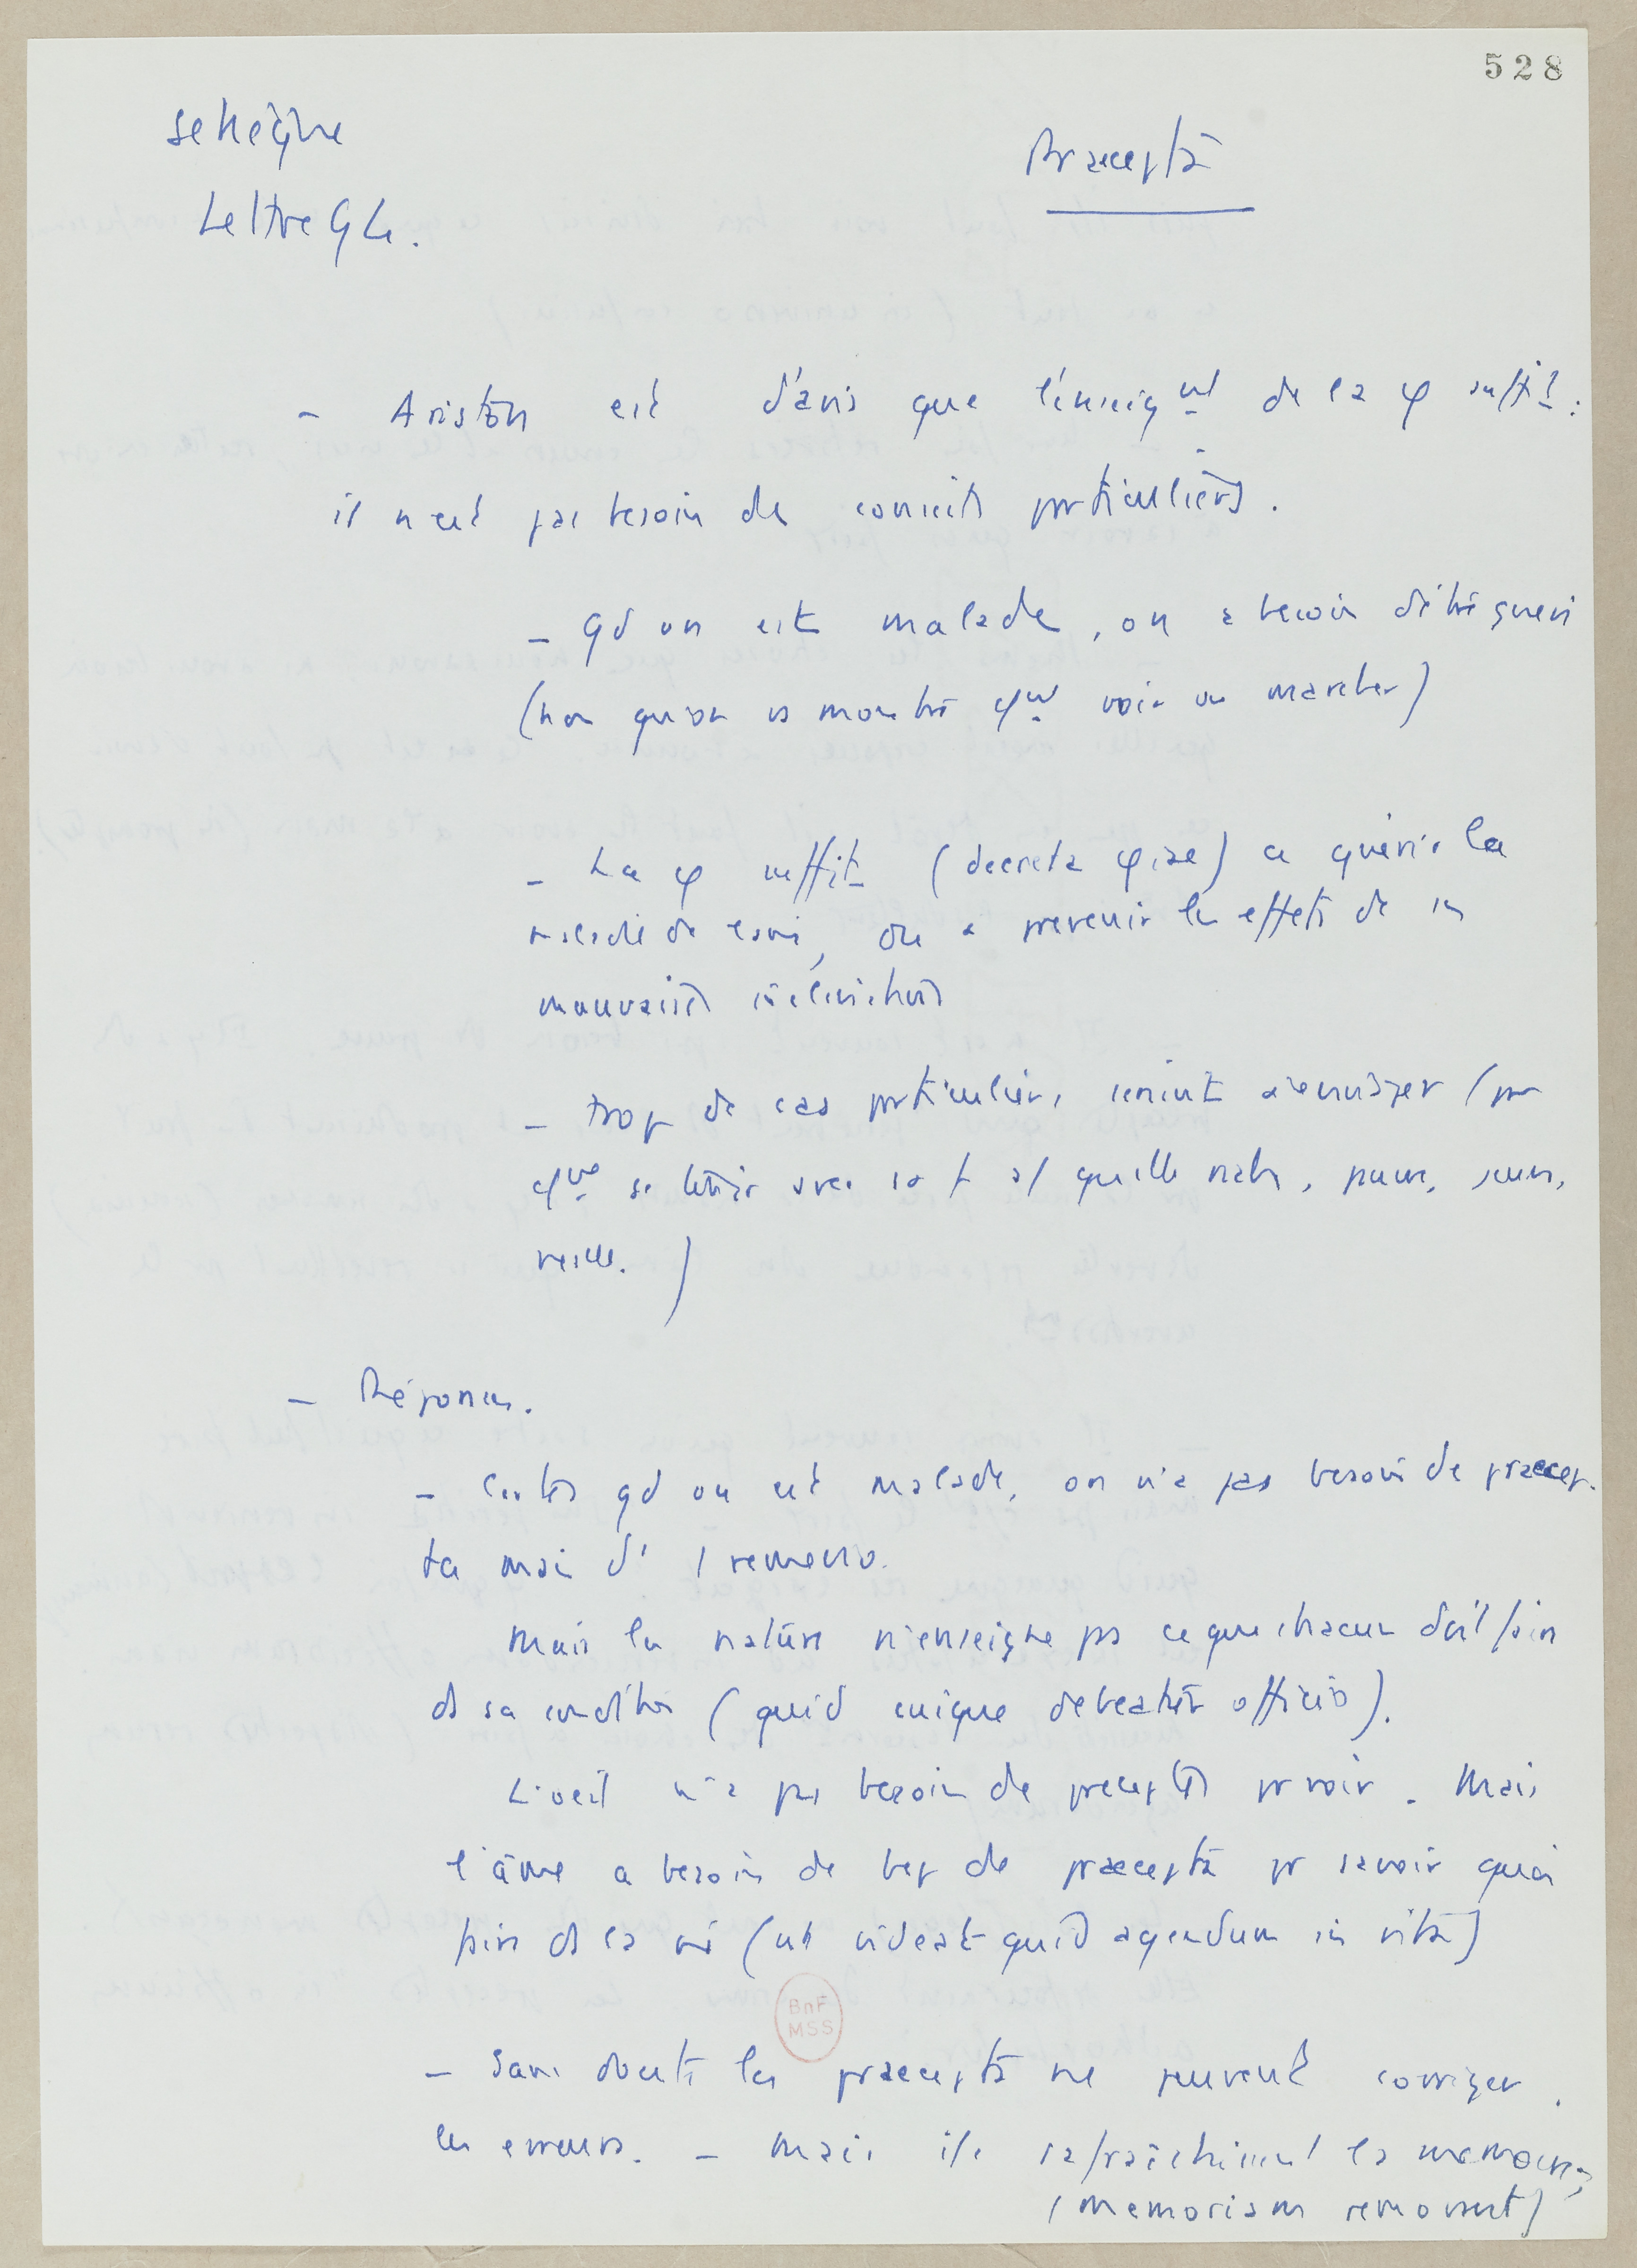 528
Sénèque
Praecepta
Lettre 94.
- Ariston est d'avis que l'enseigmt de la φ suffit :
il n'est pas besoin de conseils particuliers.
- Qd on est malade, on a besoin d'être guéri
(non qu'on ns montre cmt voir ou marcher)
- La φ suffit (decreta φiae) a guérir la
maladie de l'âme, ou a prevenir les effets de ses
mauvaises inclinations
- trop de cas particuliers seraient à envisager (par
se tenir avec sa f qu'elle , pauvre, jeune,
vieille.)
- Réponses.
- Certes qd on est malade, on n'a pas besoin de praecep-
ta mais d' 1 remedio.
Mais la nature n'enseigne pas ce que chacun doit faire
ds sa condition (quid cuique debeatur officio).
L'oeil n'a pas besoin de preceptes pr voir. Mais
l'âme a besoin de bcp de praecepta pr savoir quoi
faire ds la vie (ut videat quid agendum in vita)
BnF
MSS
- Sans doute les praecepta ne peuvent corriger
les erreurs. - Mais ils rafraîchissent la mémoire ;
(memoriam renovant)